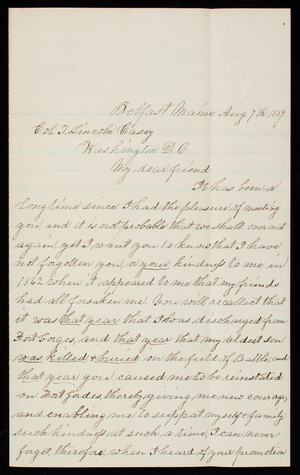 Belfast Maine Aug 7th 1889
Col. T. Lincoln Casey
Washington D. C.
My dear friend
It has been a
long time since I had the pleasure of meeting
you, and it is not probable that we shall ever meet
again, yet I want you to know that I have
not forgotten you, or your kindness to me in
1862 when it appeared to me that my friends
had all forsaken me. You will recollect that
it was that year that I was discharged from
Fort Gorges, and that year that my Oldest son
was killed & buried on the field of Battle, and
that year you caused me to be reinstated
on Fort Gorges thereby giving me new courage,
and enabling me to support myself & family
such kindness at such a time, I can never
forget, therefore, when I heard of your promotion